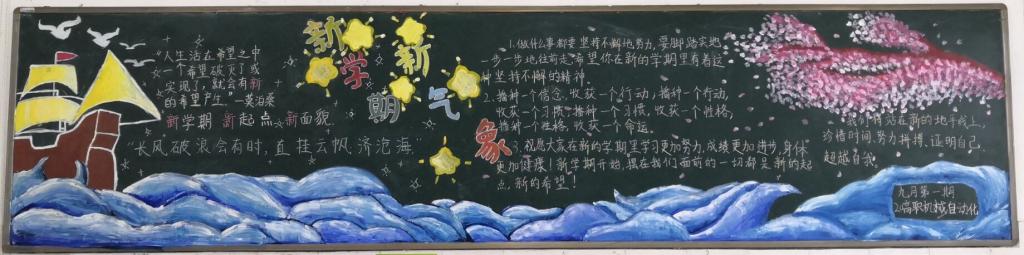 "人生活在希望之中
一个希望破灭了或
实现了，就会有新
的希望产生。"—莫泊桑
新学期 新起点 新面貌
"长风破浪会有时，直挂云帆济沧海。"
新学期
新气象
1.做什么事都要坚持不解地努力，要脚踏实地
一步一步地往前走，希望你在新的学期里有着这
种坚持不解的精神。
2.播种一个信念，收获一个行动，播种一个行动，
收获一个习惯，播种一个习惯，收获一个性格，
播种一个性格，收获一个命运。
3.祝愿大家在新的学期里学习更加努力，成绩更加进步，身体
更加健康！新学期开始，摆在我们面前的一切都是新的起
点，新的希望！
我们将站在新的地平线上，
珍惜时间，努力拼搏，证明自己，
超越自我。
九月第一期
2.高职机械自动化